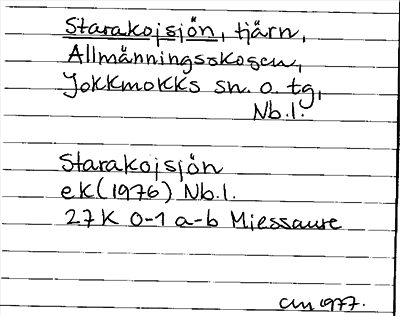 Starakojsjön, tjärn,
Allmänningsskogen,
Jokkmokks sn. o. tg,
Nb.l.
Starakojsjön
ek (1976) Nb.l.
27K 0-1 a-b Miessaure
cm 1977.